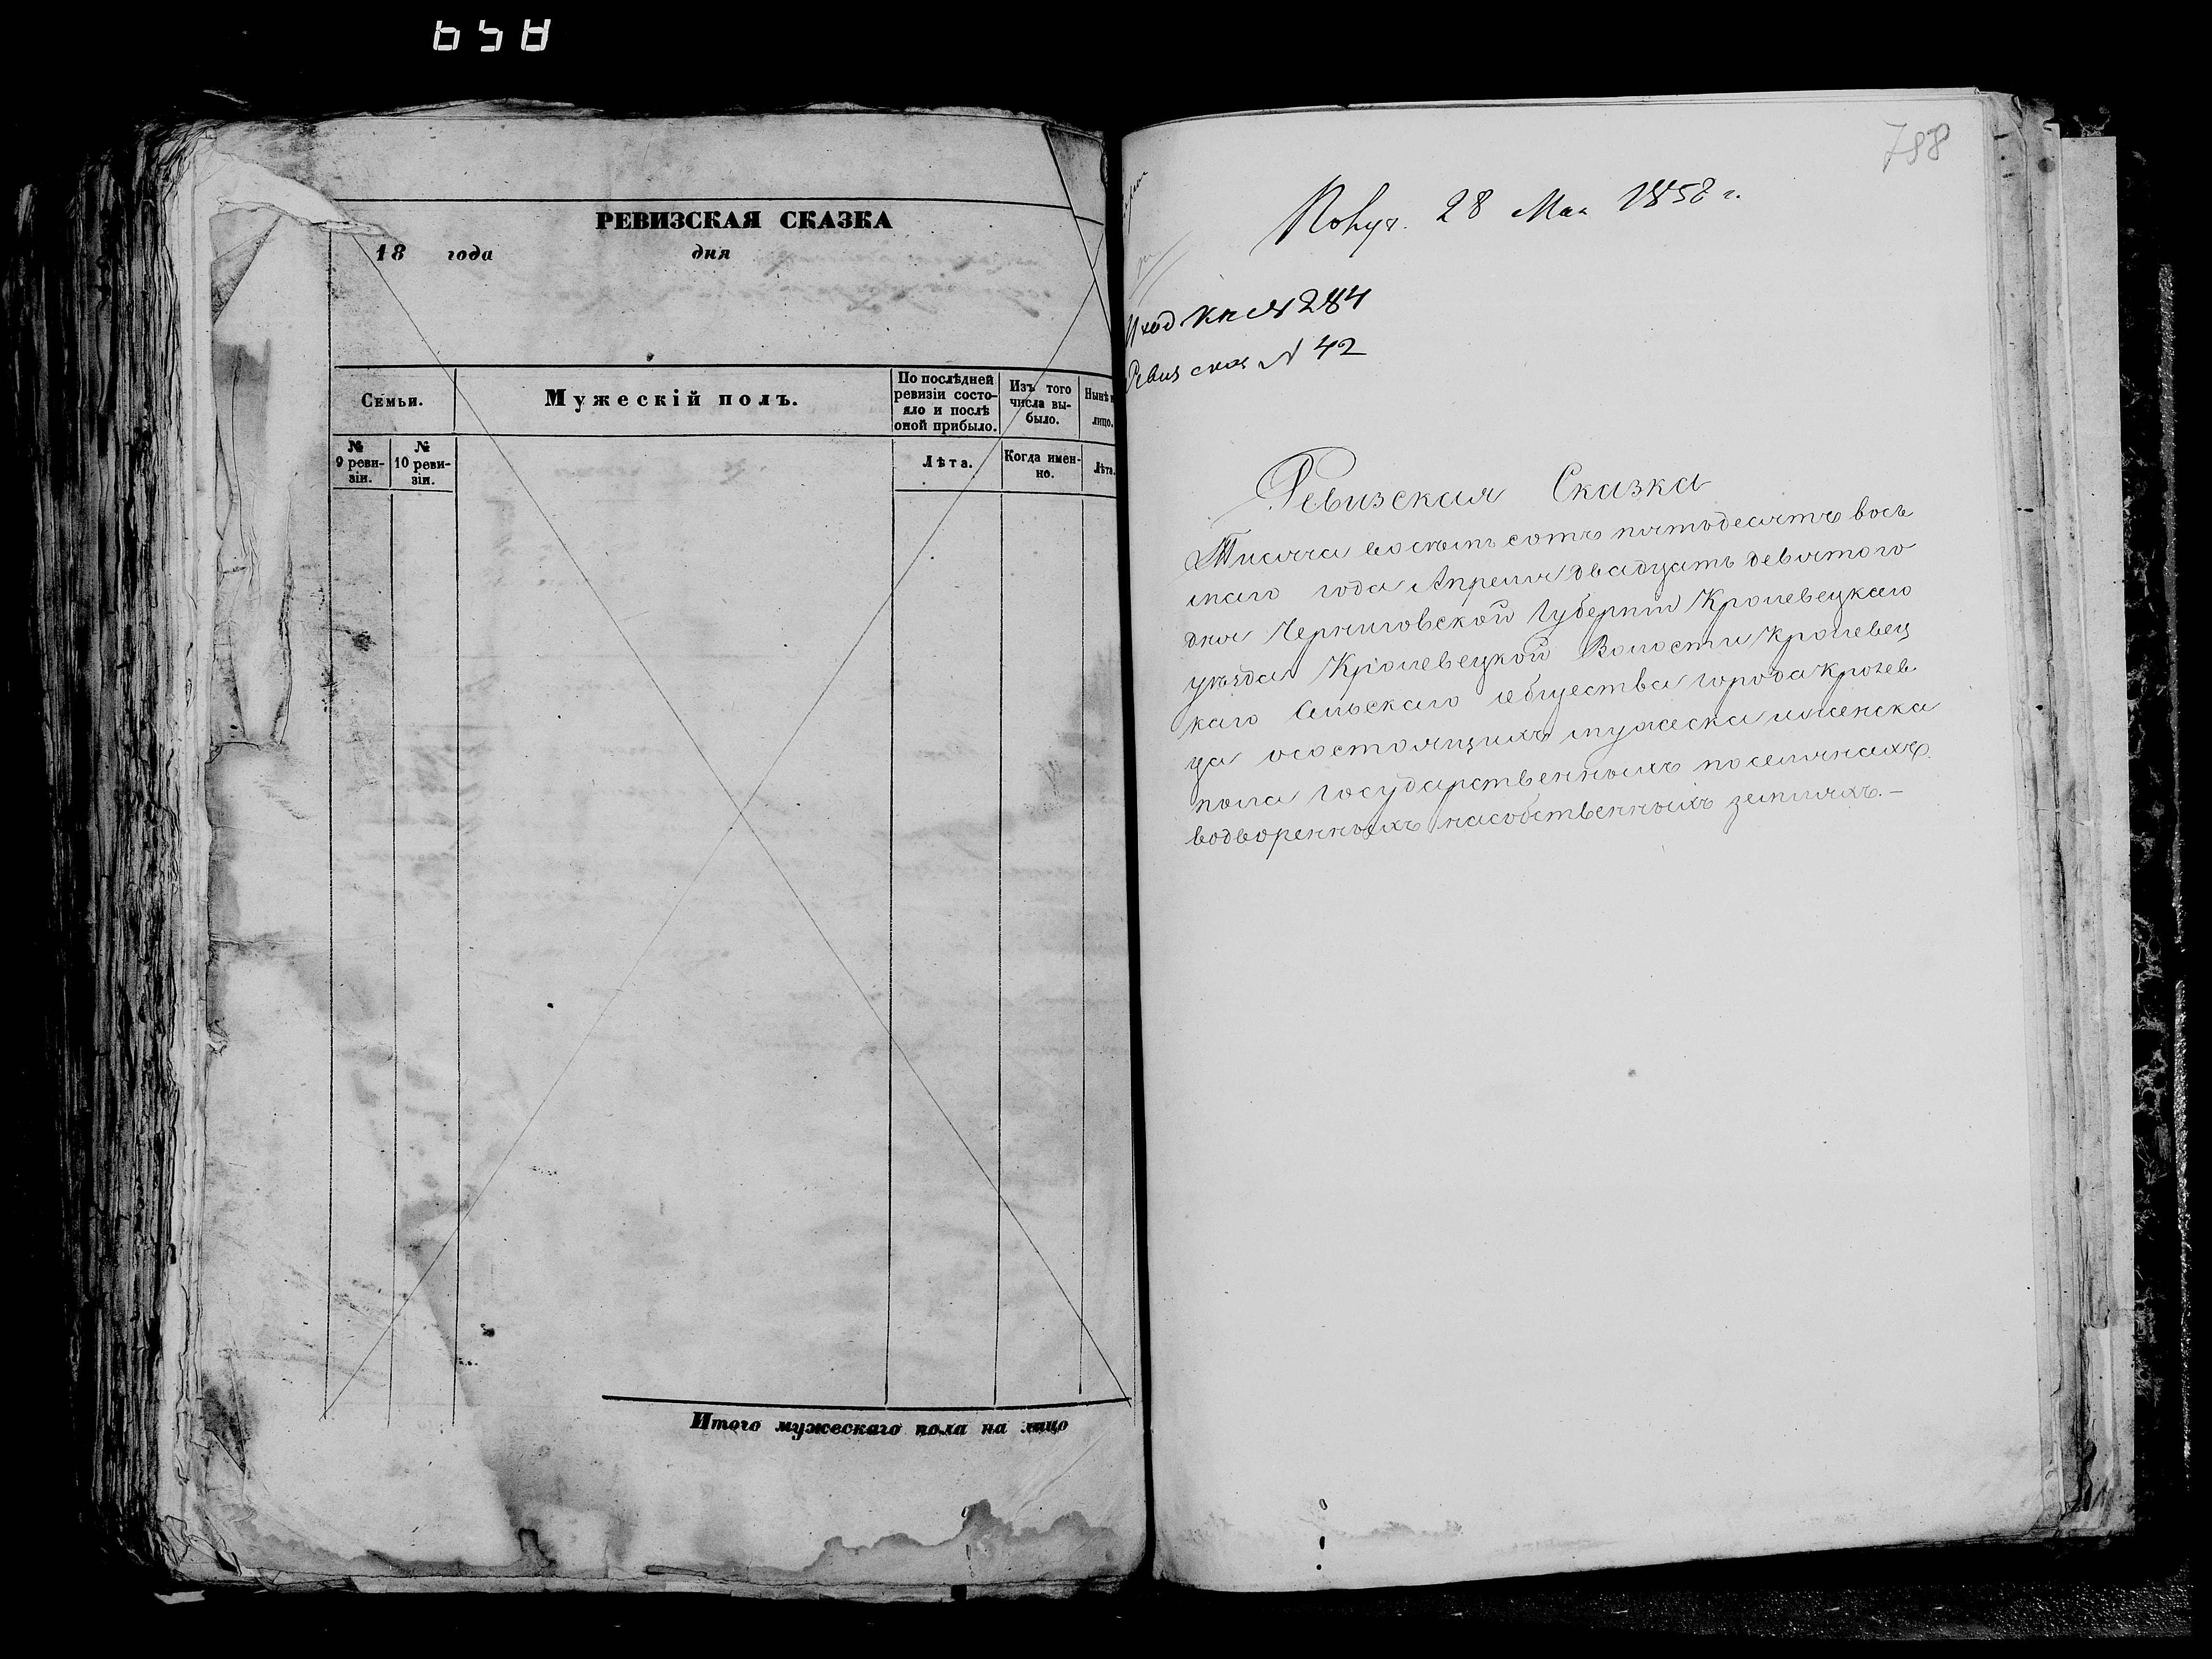 РЕВИЗСКАЯ СКАЗКА
18 года дня
Семьи.
Мужескій полъ.
По послѣдней ревизіи состо-
яло и послѣ
оной прибыло.
Изъ того
числа вы-
было.
Нынѣ
лицо.
№
9 реви-
зіи.
№
10 реви-
зіи.
Лѣта.
Когда имен-
но.
Лѣта.
Итого мужескаго пола на лицо
788
Получ. 28 Мая 1858 г.
Вход кн № 284
Ревиз сказ № 42
Ревизская Сказка
Тисяча восемъ сотъ пятьдесятъ вось
маго года Апреля двадцать девятого
дня Черниговской Губерніи Кролевецкаго
уѣзда Кролевецкой Волости Кролевец
каго Сельскаго общества города Кролев
ца осостоящихъ мужеска иженска
пола Государственныхъ поселянахъ
водворенныхъ насобственныхъ земляхъ.—